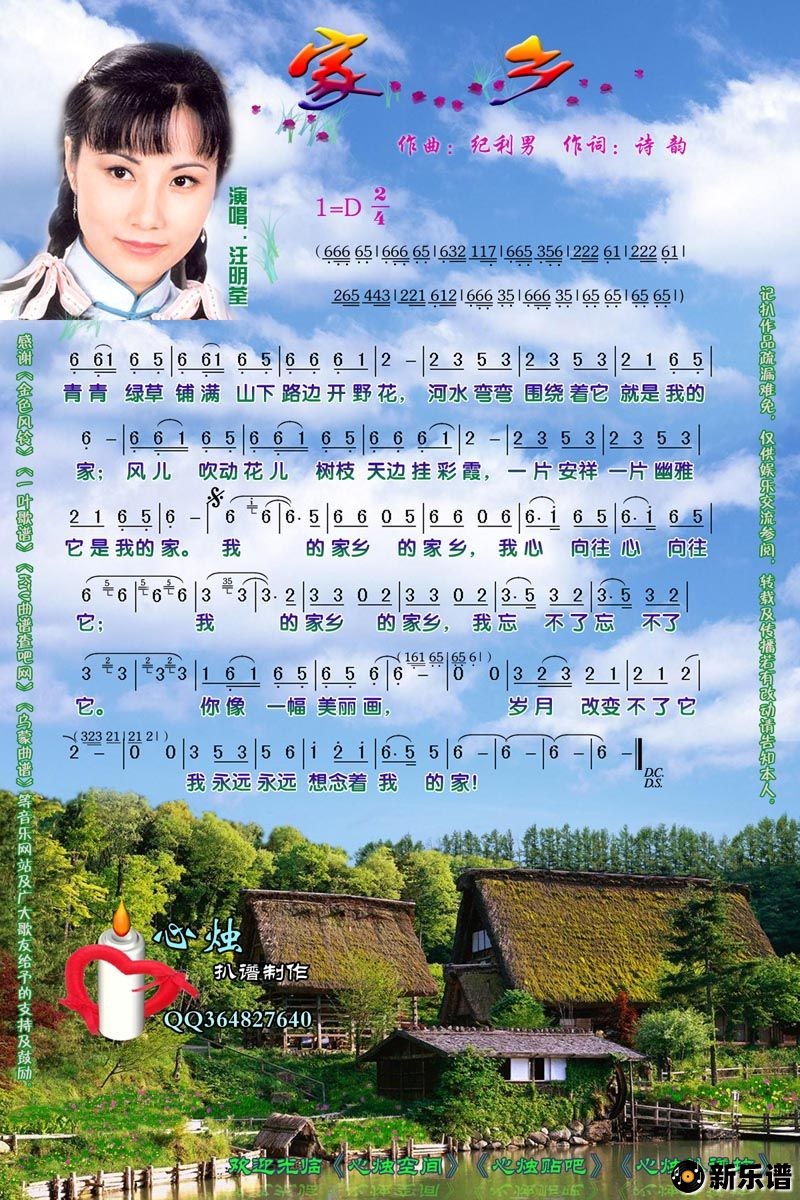 家乡
作曲：纪利男 作词：诗韵
演唱：汪明荃
1=D 2/4
(666 65|666 65|632 117|665 356|222 61|222 61|
265 443|221 612|666 35|666 35|65 65|65 65|)
6 61 6 5|6 61 6 5|6 6 6 1|2 -|2 3 5 3|2 3 5 3|2 1 6 5|
青青 绿草 铺满 山下 路边开野花， 河水弯弯 围绕着它 就是我的
6 -|6 6 1 6 5|6 6 1 6 5|6 6 6 1|2 -|2 3 5 3|2 3 5 3|
家； 风儿 吹动花儿 树枝 天边挂彩霞， 一片安祥 一片幽雅
2 1 6 5|6 -|6 i 6|6· 5|6 6 0 5|6 6 0 6|6· i 6 5|6· i 6 5|
它是我的家。 我 的家乡 的家乡，我心 向往心 向往
6 5 6|5 6 5 6|3 35 3|3· 2|3 3 0 2|3 3 0 2|3· 5 3 2|3· 5 3 2|
它； 我 的家乡 的家乡，我忘 不了忘 不了
3 2 3|2 3 2 3|1 6 1 6 5|6 5 6 5|6 (161 65|65 6|) 0 0|3 2 3 2 1|2 1 2 2|
它。 你像 一幅 美丽画， 岁月 改变不了它
2 - (323 21|21 2|) 0 0|3 5 3 5|5 6|i 2 i|6· 5 5 5|6 -|6 -|6 -|6 -‖
D.C.
D.S.
我永远永远 想念着 我 的家！
感谢《金色风铃》《一叶歌谱》《KTV曲谱查吧网》《乌蒙曲谱》等音乐网站及广大歌友给予的支持及鼓励
记扒作品疏漏难免，仅供娱乐交流参阅，转载及传播若有改动请告知本人。
心烛
扒谱制作
QQ364827640
欢迎光临《心烛空间》《心烛贴吧》《心烛
新乐谱